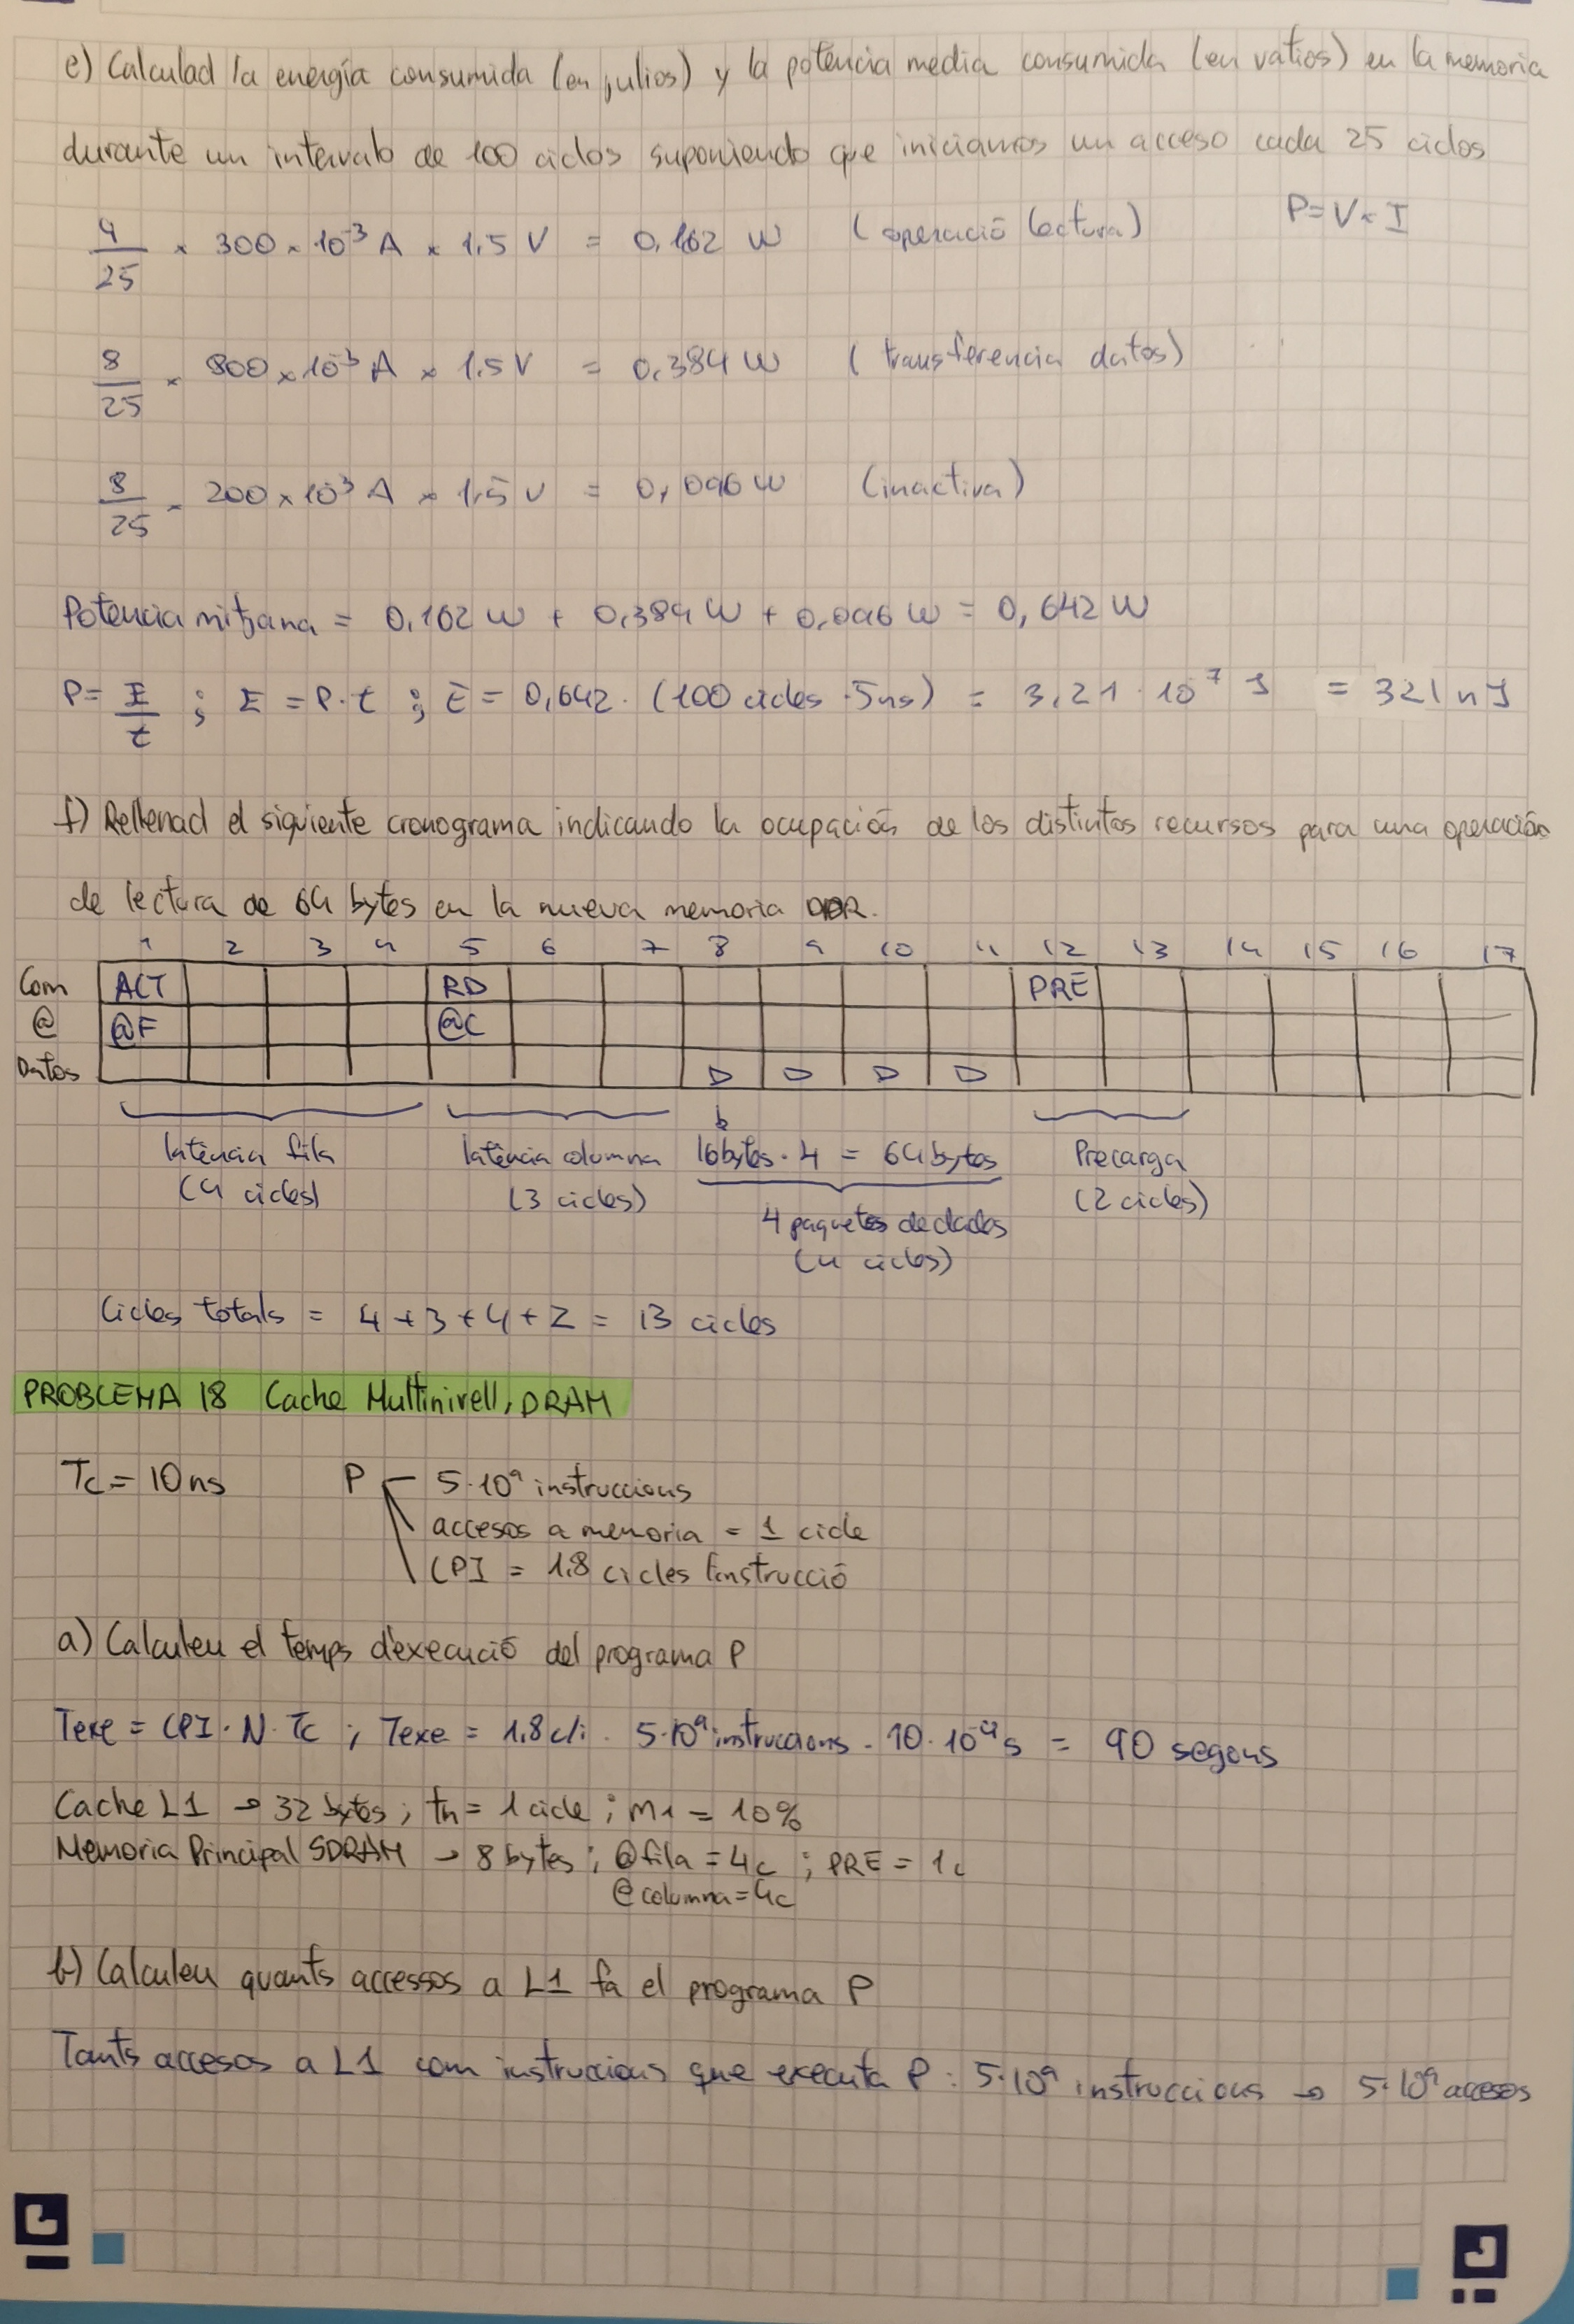 e) Calculad la energía consumida (en julios) y la potencia media consumida (en vatios) en la memoria
durante un intervalo de 100 ciclos suponiendo que iniciamos un acceso cada 25 ciclos
4/25 × 300 × 10⁻³ A × 1.5 V = 0,162 W (operació lectura) P = V × I
8/25 × 800 × 10⁻³ A × 1.5 V = 0,384 W (transferencia datos)
8/25 × 200 × 10⁻³ A × 1,5 V = 0,096 W (inactiva)
Potencia mitjana = 0,162 W + 0,384 W + 0,096 W = 0,642 W
P = E/t ; E = P·t ; E = 0,642 · (100 cicles · 5ns) = 3,21 · 10⁻⁷ J = 321 nJ
f) Rellenad el siguiente cronograma indicando la ocupación de los distintos recursos para una operación
de lectura de 64 bytes en la nueva memoria DDR.
1 2 3 4 5 6 7 8 9 10 11 12 13 14 15 16 17
Com ACT RD PRE
@ @F @C
Datos D D D D
latència fila latència columna 16bytes · 4 = 64bytes Precarga
(4 cicles) (3 cicles) (2 cicles)
4 paquetes de dades
(4 cicles)
Cicles totals = 4 + 3 + 4 + 2 = 13 cicles
PROBLEMA 18 Cache Multinivell, DRAM
Tc = 10 ns P 5·10⁹ instruccions
accesos a memoria = 1 cicle
CPI = 1,8 cicles/instrucció
a) Calculeu el temps d'execució del programa P
Texe = CPI · N · Tc ; Texe = 1,8 c/i · 5·10⁹ instruccions · 10·10⁻⁹ s = 90 segons
Cache L1 → 32 bytes ; th = 1 cicle ; m1 = 10%
Memoria Principal SDRAM → 8 bytes ; @fila = 4c ; PRE = 1c
@columna = 4c
b) Calculeu quants accessos a L1 fa el programa P
Tants accesos a L1 com instruccions que executa P : 5·10⁹ instruccions → 5·10⁹ accesos